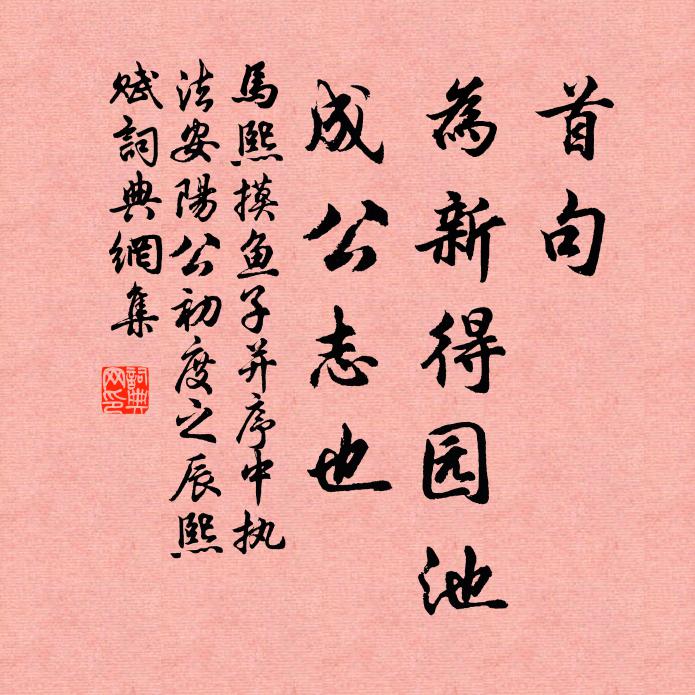 首句
為新得园池
成公志也
馬熙摸鱼子并序中执
法安陽公初度之辰熙
赋詞典網集
詞典
网印